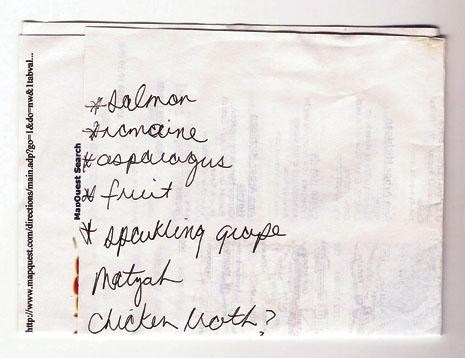 *salmon
*romaine
*asparagus
* fruit
* sparkling grape
Matzah
Chicken broth?
MapQuest Search
http://www.mapquest.com/directions/main.adp?go=1&do=nw&1tabval...